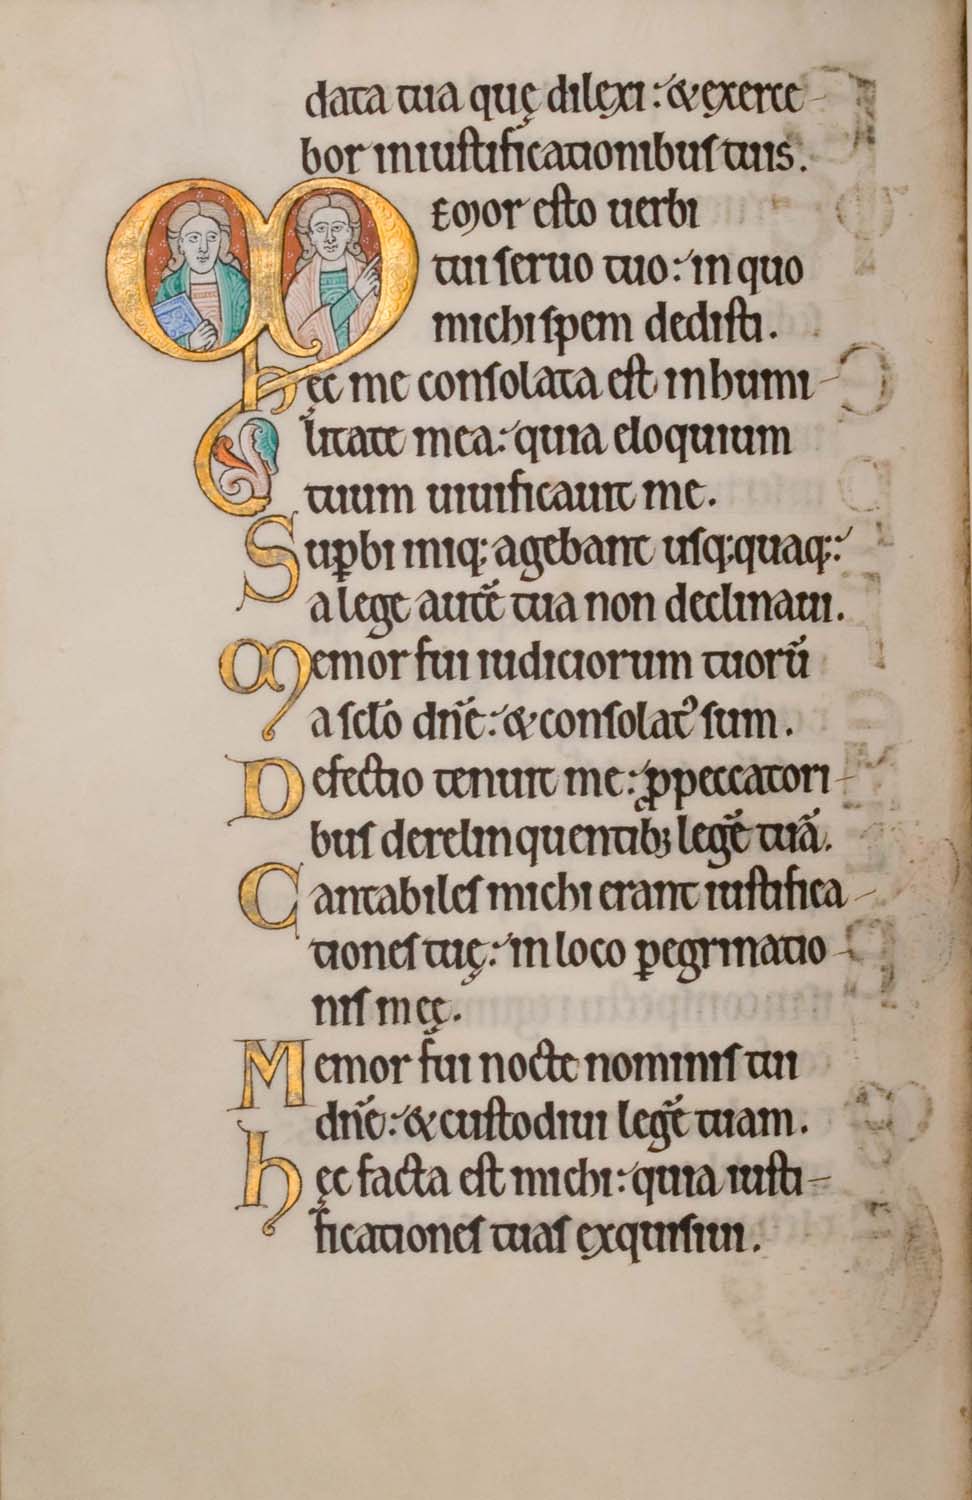 data tua quę dilexi: & exerce-
bor iniustificationibus tuis.
Memor esto uerbi
tui seruo tuo: in quo
michi spem dedisti.
hęc me consolata est inhumi-
litate mea: quia eloquium
tuum uiuificauit me.
Supbi iniq; agebant usq; quaq;:
a lege autē tua non declinaui.
Memor fui iudiciorum tuorū
a sclo dne: & consolat' sum.
Defectio tenuit me: p peccatori-
bus derelinquentib; legē tuā.
Cantabiles michi erant iustifica-
tiones tuę: in loco pegrinatio-
nis meę.
Memor fui nocte nominis tui
dne: & custodiui legē tuam.
hęc facta est michi: quia iusti-
ficationes tuas exquisiui.